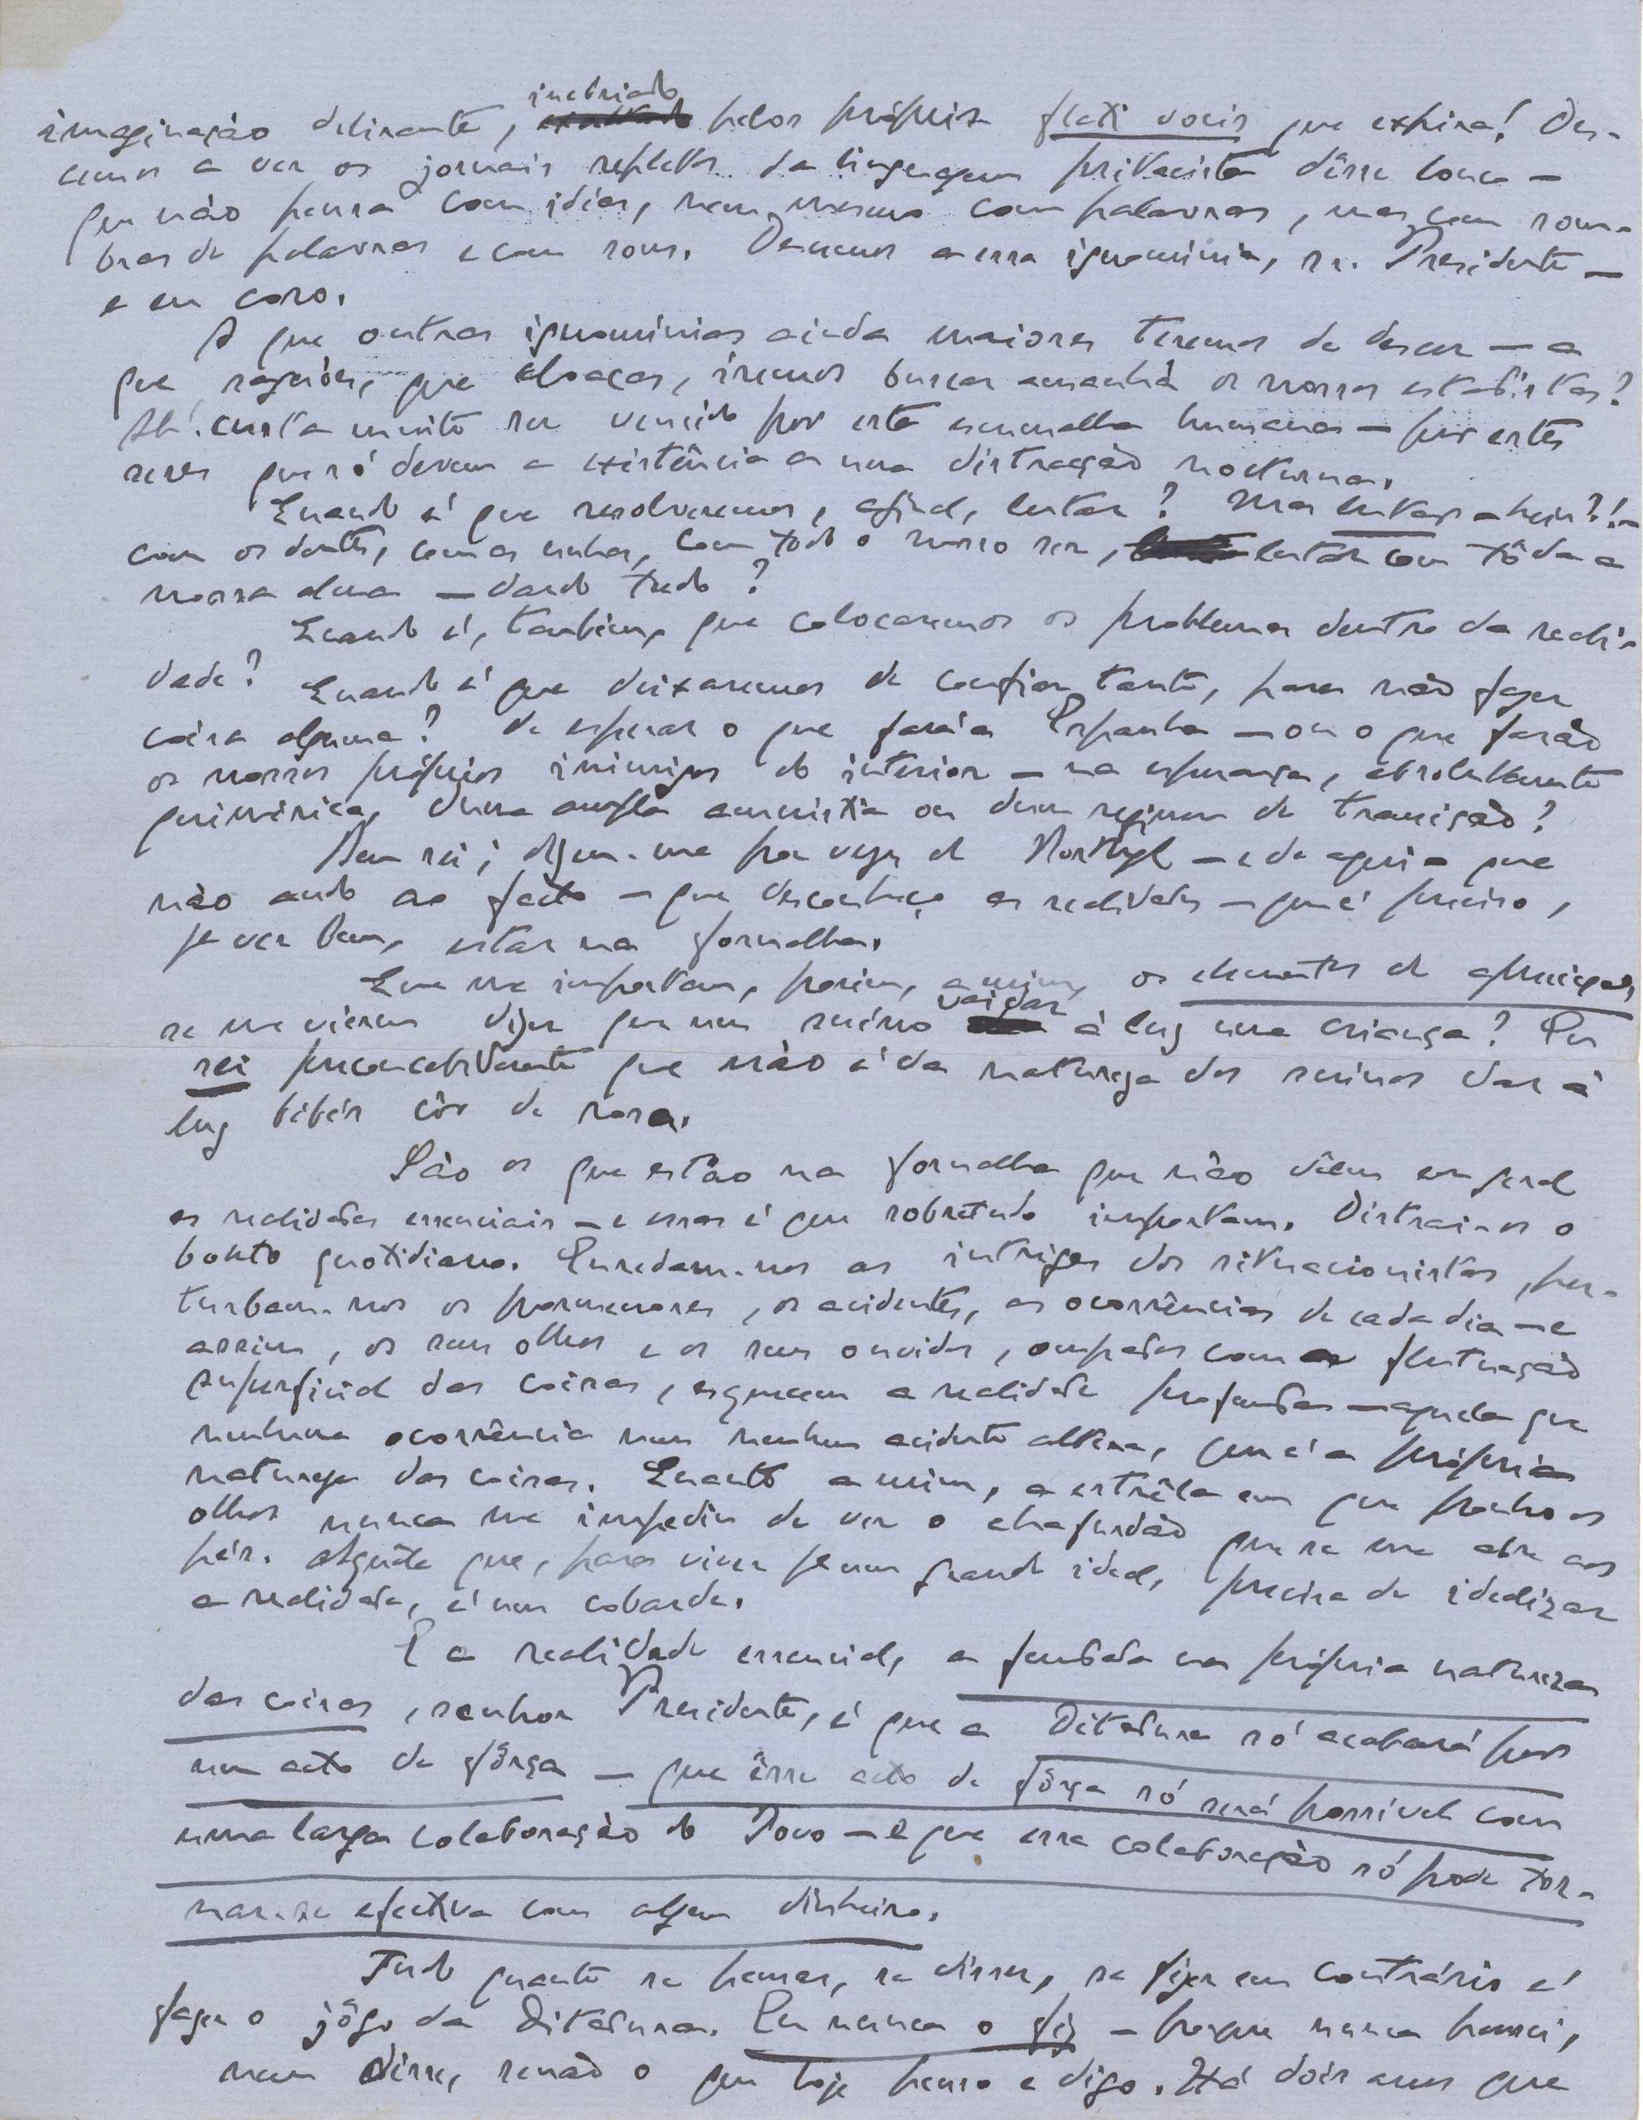 imaginação delirante, inebriado pelos próprios flati vocis que expira! Des-
cemos a ver os jornais repletos da linguagem privativa dêsse louco —
que não pensa com idéias, nem mesmo com palavras, mas com som-
bras de palavras e com sons. Descemos a essa ignomínia, sr. Presidente —
e em coro.
A que outras ignomínias ainda maiores teremos de descer — a
que saguões, que cloacas, iremos buscar amanhã os nossos estadistas?
Ah! custa muito ser vencido por esta escumalha humana — por estes
seres que só devem a existência a uma distração nocturna.
Quando é que resolveremos, afinal, lutar? Mas lutar a sério?! —
com os dentes, com as unhas, com todo o nosso ser, lutar com tôda a
nossa alma — dando tudo?
Quando é, também, que colocaremos os problemas dentro da reali-
dade? Quando é que deixaremos de confiar tanto, para não fazer
coisa alguma? de esperar o que fará a Espanha — ou o que farão
os nossos próprios inimigos do interior — na esperança, absolutamente
quimérica, duma ampla amnistia ou dum regimen de transição?
Bem sei; dizem-me por vezes de Portugal — e de aqui — que
não ando ao facto — que desconheço as realidades — que é preciso,
pa ver bem, estar na fornalha.
Que me importam, porém, a mim, os elementos de apreciação,
se me vierem dizer que um suíno vai dar à luz uma criança? Eu
sei preconcebidamente que não é da natureza dos suínos dar à
luz bebés côr de rosa.
São os que estão na fornalha que não vêem em geral
as realidades essenciais — e essas é que sobretudo importam. Distrai-os o
boato quotidiano. Enredam-nos as intrigas dos situacionistas, per-
turbam-nos os pormenores, os acidentes, as ocorrências de cada dia — e
assim, os seus olhos e os seus ouvidos, ocupados com a flutuação
superficial das coisas, esquecem a realidade profunda — aquela que
nenhuma ocorrência nem nenhum acidente altera, que é a própria
natureza das coisas. Quanto a mim, a estrêla em que ponho os
olhos nunca me impediu de ver o chafurdão que se me abre aos
pés. Aquêle que, para viver pa um grande ideal, precisa de idealizar
a realidade, é um cobarde.
E a realidade essencial, a fundada na própria natureza
das coisas, senhor Presidente, é que a Ditadura só acabará por
um acto de fôrça — que êsse acto de fôrça só será possível com
uma larga colaboração do Povo — e que essa colaboração só pode tor-
nar-se efectiva com algum dinheiro.
Tudo quanto se pensar, se disser, se fizer em contrário é
fazer o jôgo da Ditadura. Eu nunca o fiz — porque nunca pensei,
nem disse, senão o que hoje penso e digo. Há dois anos que